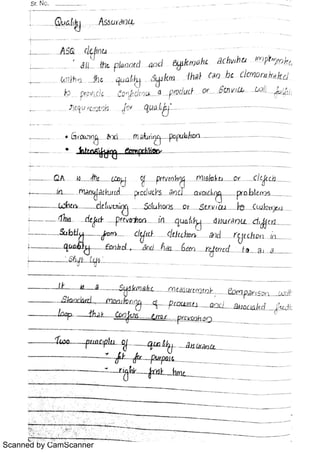 Sr. No.
Quality Assurance
ASQ defines
" all the planned and systematic activities implemented
within the quality system that can be demonstrated
to provide confidence a product or service will fulfill
requirements for quality"
• Growing and maturing population
•
QA is the way of preventing mistakes or defects
in manufactured products and avoiding problems
when delivering solutions or services to customers
This defect prevention in quality assurance differs
subtly from defect detection and rejection in
quality control, and has been referred to as a
shift left
It is a systematic measurement comparison with
standard, monitoring of processes and associated feedback
loop that confers error prevention
Two principles of quality assurance
- fit for purpose
- right first time
Scanned by CamScanner